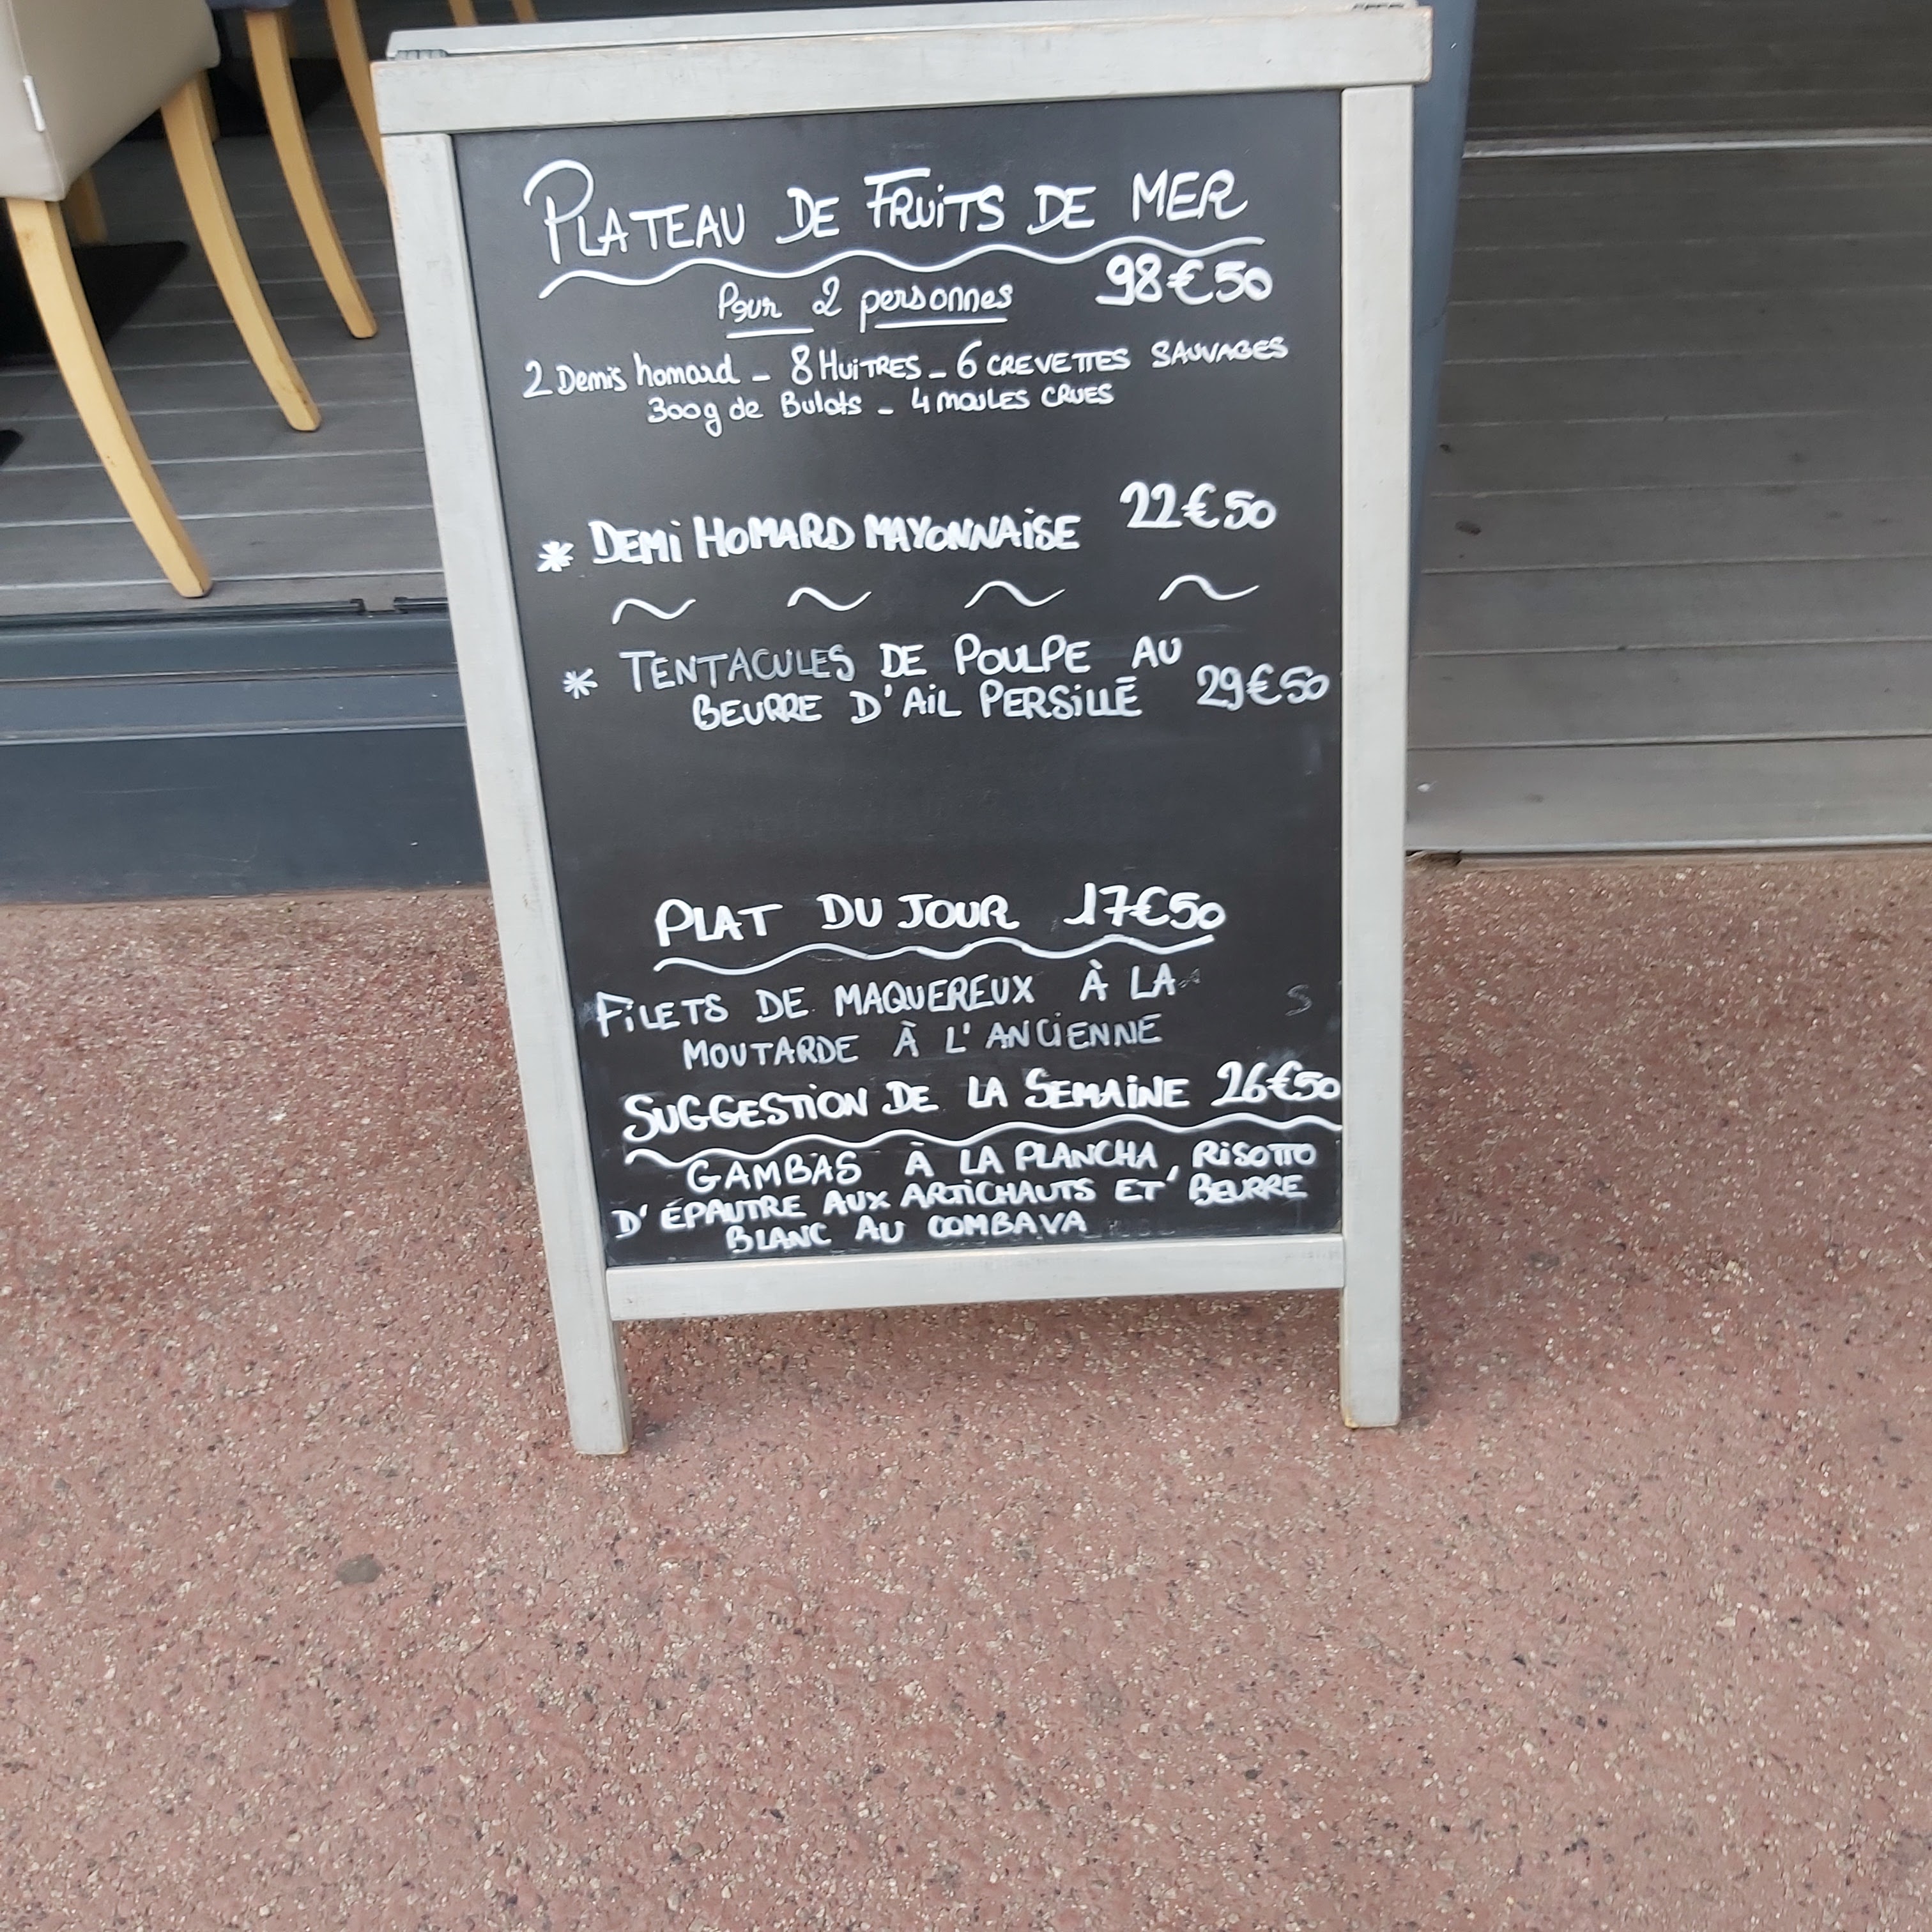 PLATEAU DE FRUITS DE MER
Pour 2 personnes 98€50
2 Demis homard - 8 HUITRES - 6 CREVETTES SAUVAGES
300g de Bulots - 4 MOULES CRUES
* DEMI HOMARD MAYONNAISE 22€50
* TENTACULES DE POULPE AU
BEURRE D'AIL PERSILLÉ 29€50
PLAT DU JOUR 17€50
FILETS DE MAQUEREUX À LA
MOUTARDE À L'ANCIENNE
SUGGESTION DE LA SEMAINE 26€50
GAMBAS À LA PLANCHA, RISOTTO
D'ÉPAUTRE AUX ARTICHAUTS ET BEURRE
BLANC AU COMBAVA